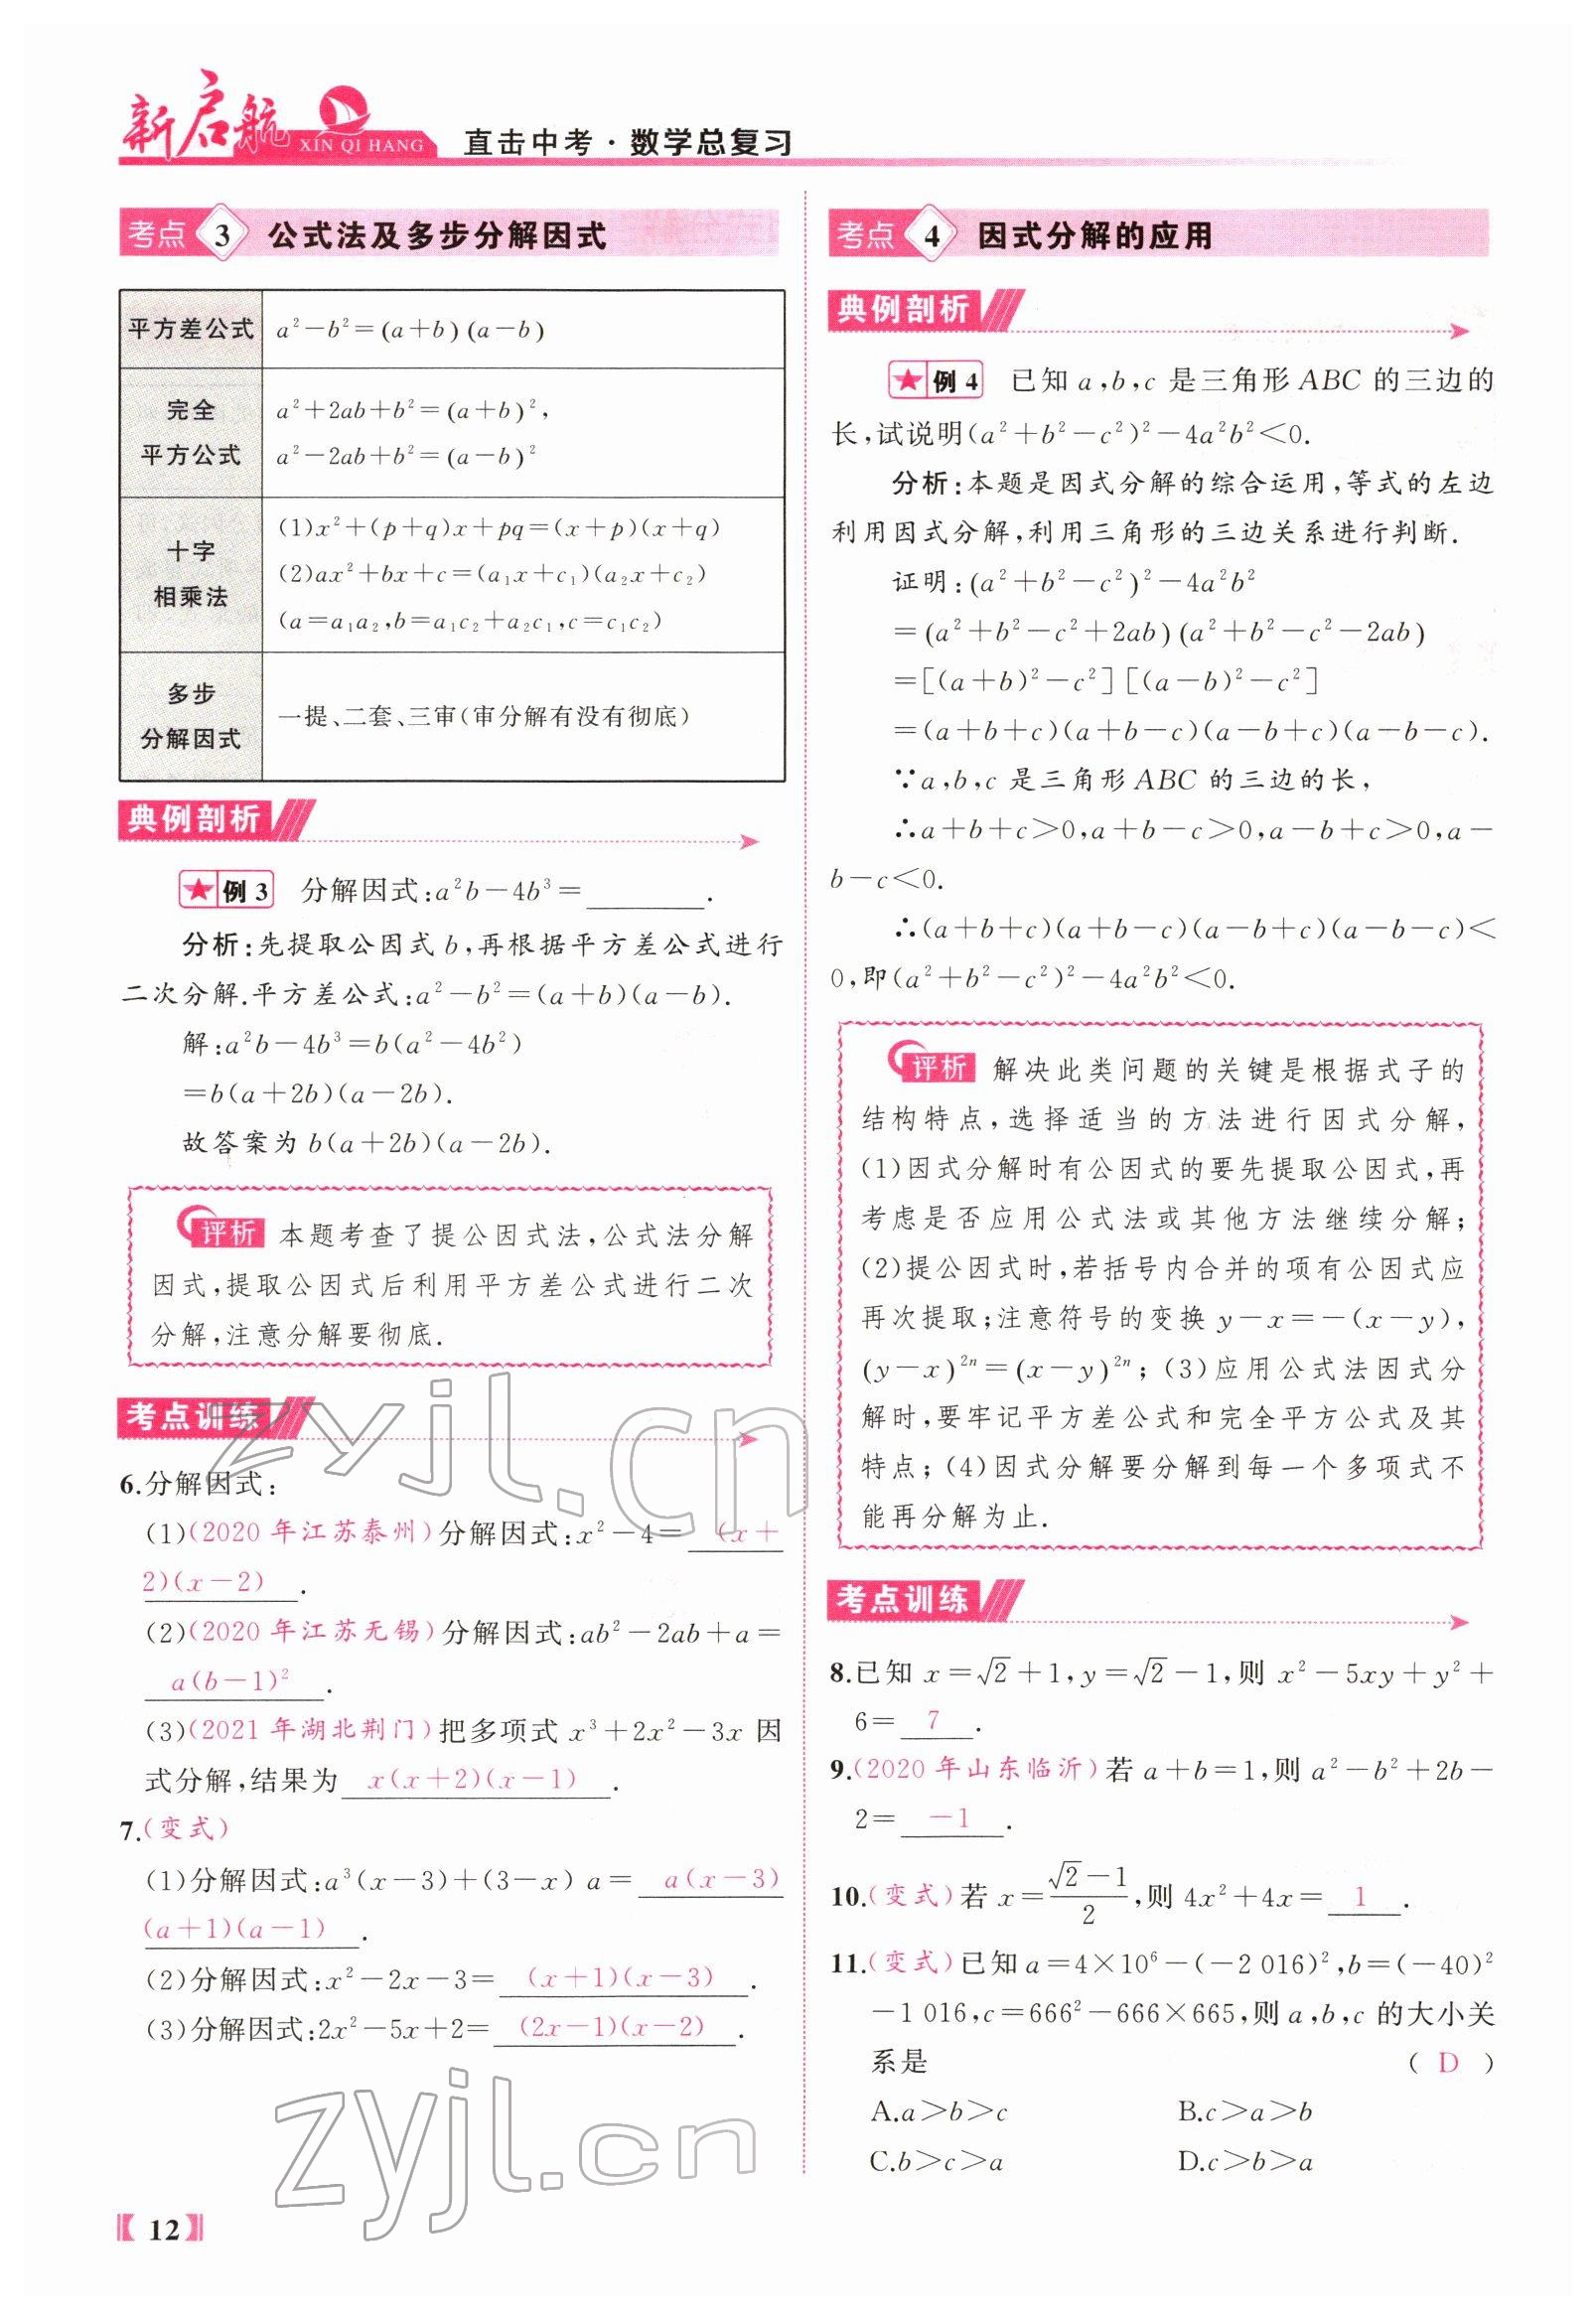 新启航 XIN QI HANG 直击中考·数学总复习
考点 3 公式法及多步分解因式
平方差公式 a²－b²＝(a＋b)(a－b)
完全
平方公式
a²＋2ab＋b²＝(a＋b)²，
a²－2ab＋b²＝(a－b)²
十字
相乘法
(1)x²＋(p＋q)x＋pq＝(x＋p)(x＋q)
(2)ax²＋bx＋c＝(a₁x＋c₁)(a₂x＋c₂)
(a＝a₁a₂,b＝a₁c₂＋a₂c₁,c＝c₁c₂)
多步
分解因式
一提、二套、三审(审分解有没有彻底)
典例剖析
★例3 分解因式:a²b－4b³＝________.
分析:先提取公因式 b,再根据平方差公式进行
二次分解.平方差公式:a²－b²＝(a＋b)(a－b).
解:a²b－4b³＝b(a²－4b²)
＝b(a＋2b)(a－2b).
故答案为 b(a＋2b)(a－2b).
评析 本题考查了提公因式法,公式法分解
因式,提取公因式后利用平方差公式进行二次
分解,注意分解要彻底.
考点训练
6.分解因式:
(1)(2020 年江苏泰州)分解因式:x²－4＝ (x＋
2)(x－2) .
(2)(2020 年江苏无锡)分解因式:ab²－2ab＋a＝
a(b－1)² .
(3)(2021 年湖北荆门)把多项式 x³＋2x²－3x 因
式分解,结果为 x(x＋2)(x－1) .
7.(变式)
(1)分解因式:a³(x－3)＋(3－x) a＝ a(x－3)
(a＋1)(a－1) .
(2)分解因式:x²－2x－3＝ (x＋1)(x－3) .
(3)分解因式:2x²－5x＋2＝ (2x－1)(x－2) .
考点 4 因式分解的应用
典例剖析
★例4 已知 a,b,c 是三角形 ABC 的三边的
长,试说明(a²＋b²－c²)²－4a²b²＜0.
分析:本题是因式分解的综合运用,等式的左边
利用因式分解,利用三角形的三边关系进行判断.
证明:(a²＋b²－c²)²－4a²b²
＝(a²＋b²－c²＋2ab)(a²＋b²－c²－2ab)
＝[(a＋b)²－c²][(a－b)²－c²]
＝(a＋b＋c)(a＋b－c)(a－b＋c)(a－b－c).
∵a,b,c 是三角形 ABC 的三边的长,
∴a＋b＋c＞0,a＋b－c＞0,a－b＋c＞0,a－
b－c＜0.
∴(a＋b＋c)(a＋b－c)(a－b＋c)(a－b－c)＜
0,即(a²＋b²－c²)²－4a²b²＜0.
评析 解决此类问题的关键是根据式子的
结构特点,选择适当的方法进行因式分解,
(1)因式分解时有公因式的要先提取公因式,再
考虑是否应用公式法或其他方法继续分解;
(2)提公因式时,若括号内合并的项有公因式应
再次提取;注意符号的变换 y－x＝－(x－y),
(y－x)²ⁿ＝(x－y)²ⁿ;(3)应用公式法因式分
解时,要牢记平方差公式和完全平方公式及其
特点;(4)因式分解要分解到每一个多项式不
能再分解为止.
考点训练
8.已知 x＝√2＋1,y＝√2－1,则 x²－5xy＋y²＋
6＝ 7 .
9.(2020 年山东临沂)若 a＋b＝1,则 a²－b²＋2b－
2＝ －1 .
10.(变式)若 x＝(√2－1)/2,则 4x²＋4x＝ 1 .
11.(变式)已知 a＝4×10⁶－(－2 016)²,b＝(－40)²
－1 016,c＝666²－666×665,则 a,b,c 的大小关
系是 ( D )
A.a＞b＞c B.c＞a＞b
C.b＞c＞a D.c＞b＞a
12
zyjl.cn
zyjl.cn